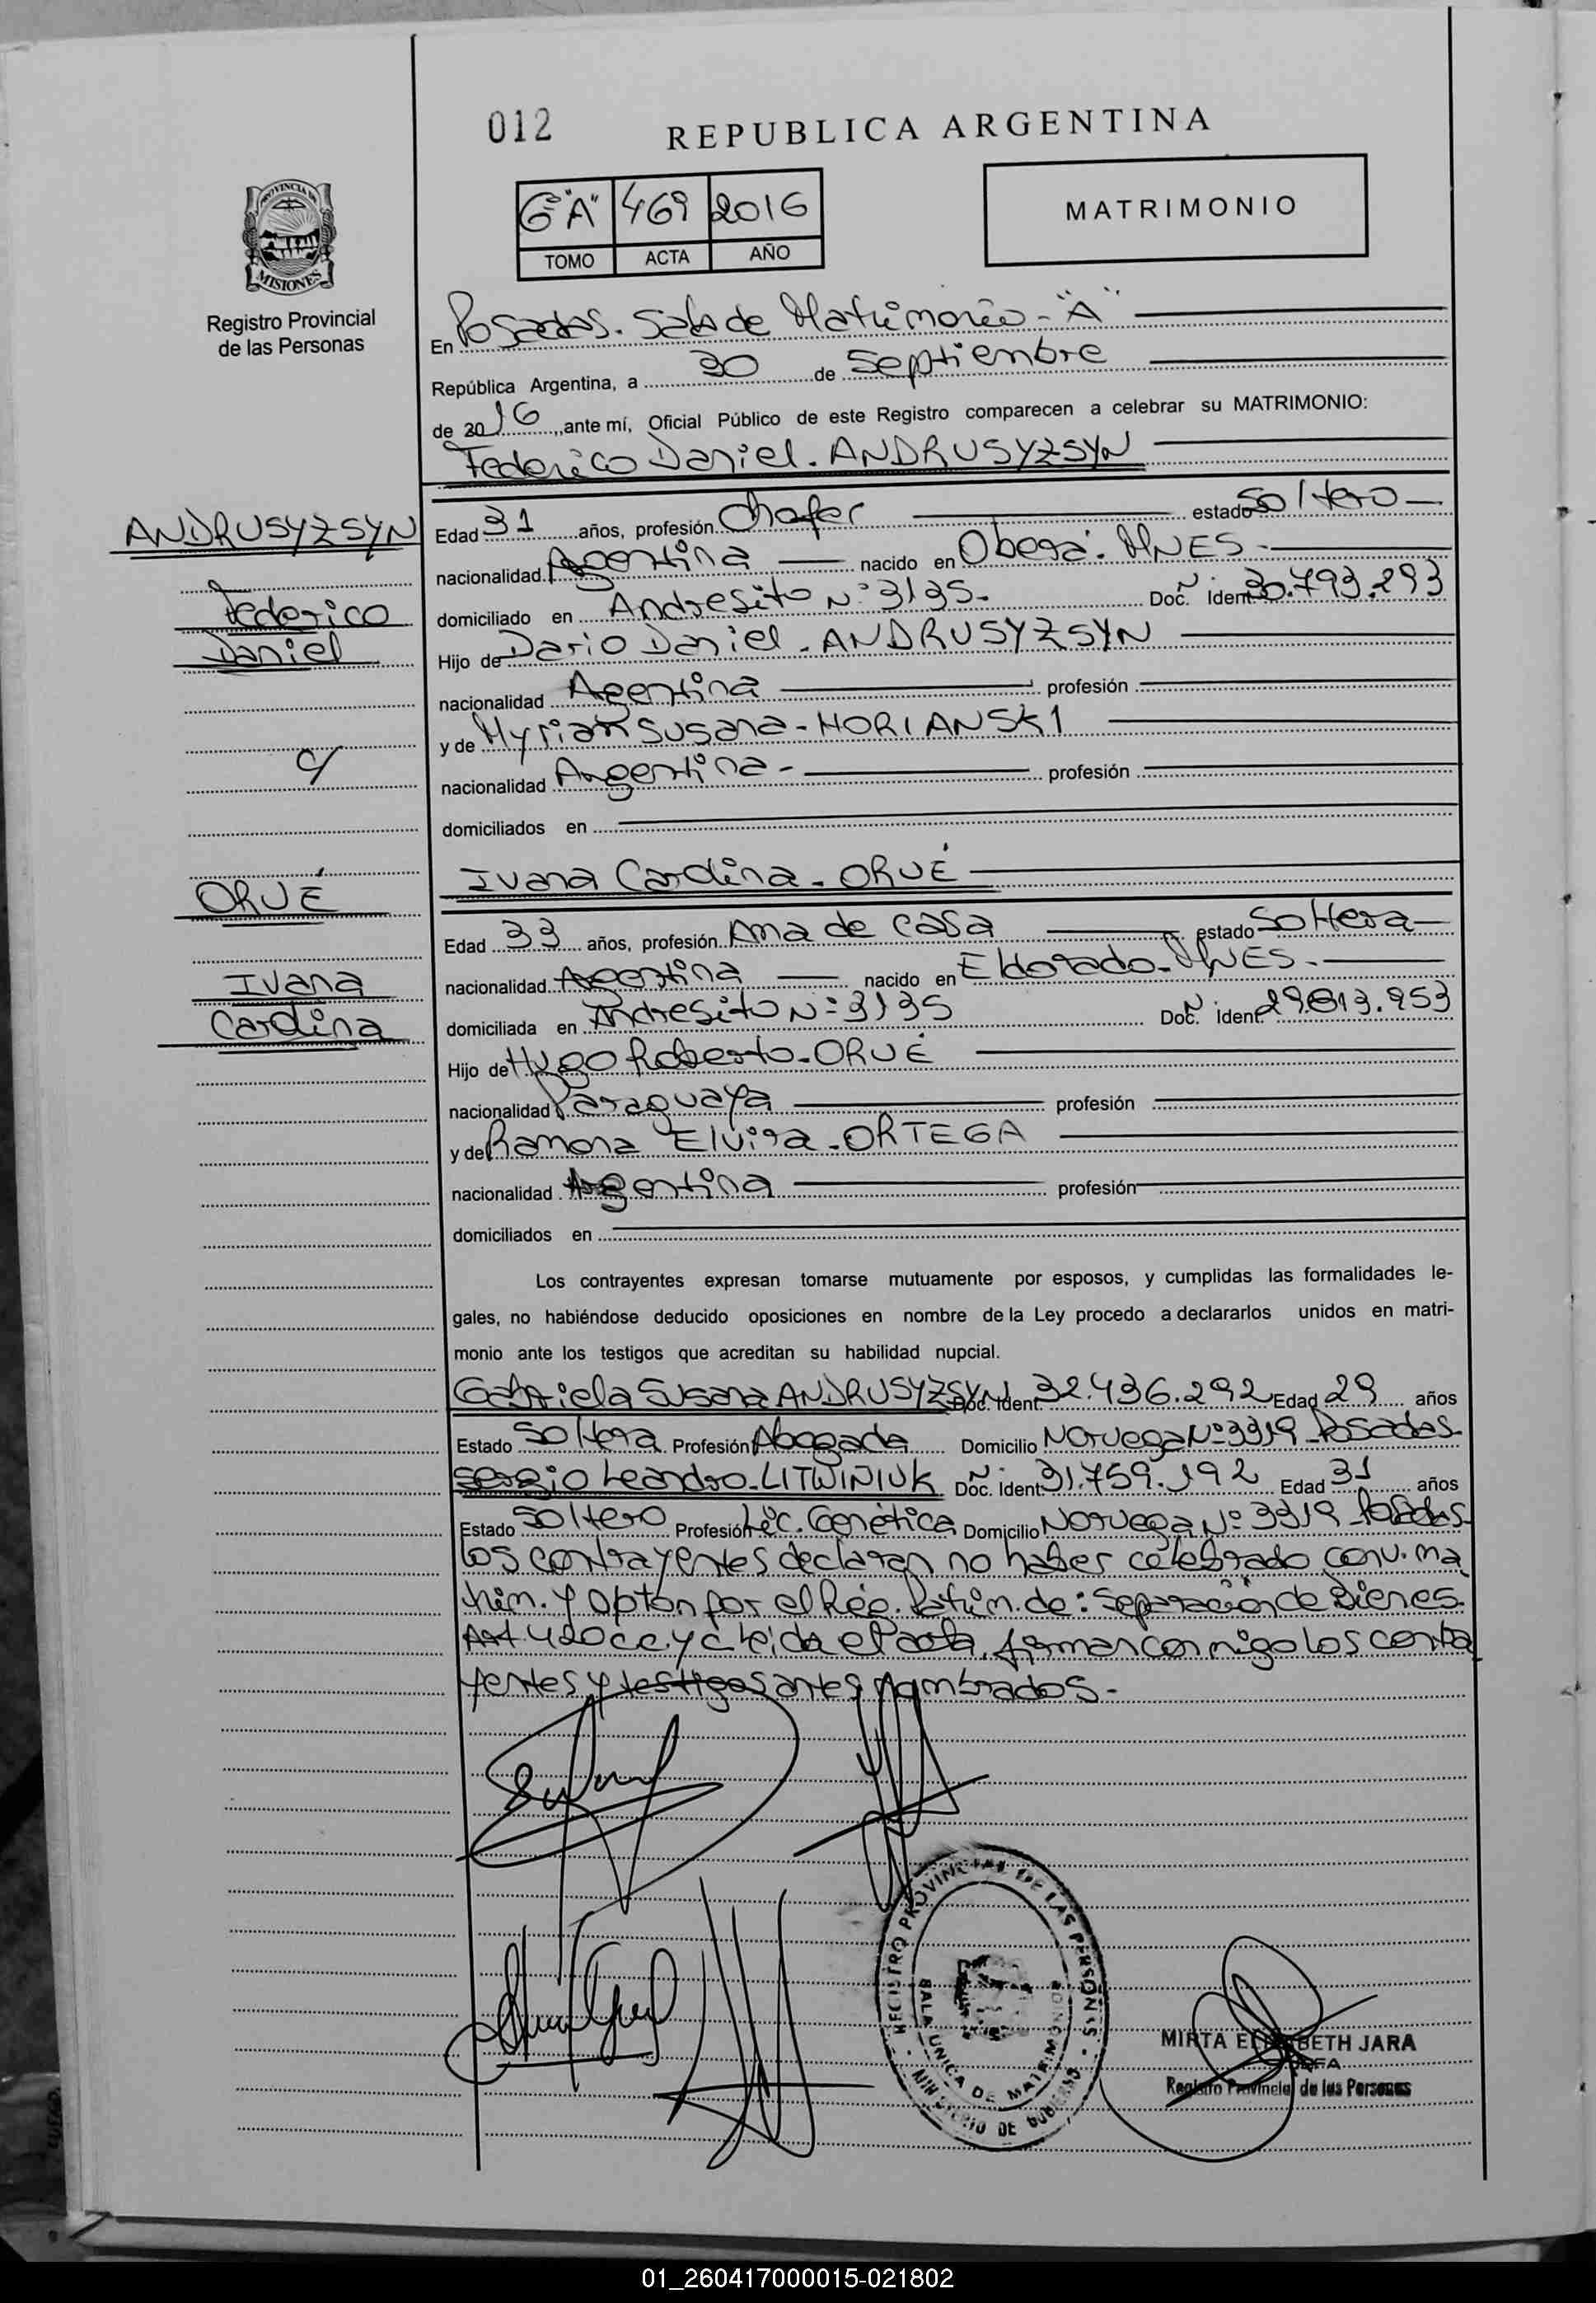 012
REPUBLICA ARGENTINA
6º "A" 469 2016
TOMO ACTA AÑO
MATRIMONIO
PROVINCIA DE
MISIONES
Registro Provincial
de las Personas
En Posadas. Sala de Matrimonio - "A"
República Argentina, a 30 de Septiembre
de 2016, ante mí, Oficial Público de este Registro comparecen a celebrar su MATRIMONIO:
Federico Daniel. ANDRUSYZSYN
ANDRUSYZSYN
Federico
Daniel
c/
ORUÉ
Ivana
Carolina
Edad 31 años, profesión Chofer estado Soltero
nacionalidad Argentina nacido en Oberá. MNES -
domiciliado en Andresito Nº 3135. Doc. Ident. Nº 30.793.293
Hijo de Dario Daniel. ANDRUSYZSYN
nacionalidad Argentina profesión
y de Myriam Susana - MORIANSKI
nacionalidad Argentina - profesión
domiciliados en
Ivana Carolina. ORUÉ
Edad 33 años, profesión Ama de casa estado Soltera
nacionalidad Argentina nacido en Eldorado - MNES.
domiciliada en Andresito Nº 3135 Doc. Ident. Nº 29.813.953
Hijo de Hugo Roberto - ORUÉ
nacionalidad Paraguaya profesión
y de Ramona Elvira - ORTEGA
nacionalidad Argentina profesión
domiciliados en
Los contrayentes expresan tomarse mutuamente por esposos, y cumplidas las formalidades le-
gales, no habiéndose deducido oposiciones en nombre de la Ley procedo a declararlos unidos en matri-
monio ante los testigos que acreditan su habilidad nupcial.
Gabriela Susana ANDRUSYZSYN Doc. Ident. 32.436.292 Edad 29 años
Estado Soltera Profesión Abogada Domicilio Noruega Nº 3319 Posadas
Sergio Leandro - LITWIÑIUK Doc. Ident. Nº 31.759.192 Edad 31 años
Estado Soltero Profesión Lic. Genética Domicilio Noruega Nº 3319 Posadas
Los contrayentes declaran no haber celebrado conv. ma
trim. y optan por el Rég. Patrim. de: Separación de Bienes.
Art. 420 cc. y c leida el acta, firman conmigo los contra
yentes y testigos antes nombrados. -
REGISTRO PROVINCIAL DE LAS PERSONAS
SALA UNICA DE MATRIMONIOS
MINISTERIO DE GOBIERNO
MIRTA ELIZABETH JARA
JEFA
Registro Provincial de las Personas
01_260417000015-021802